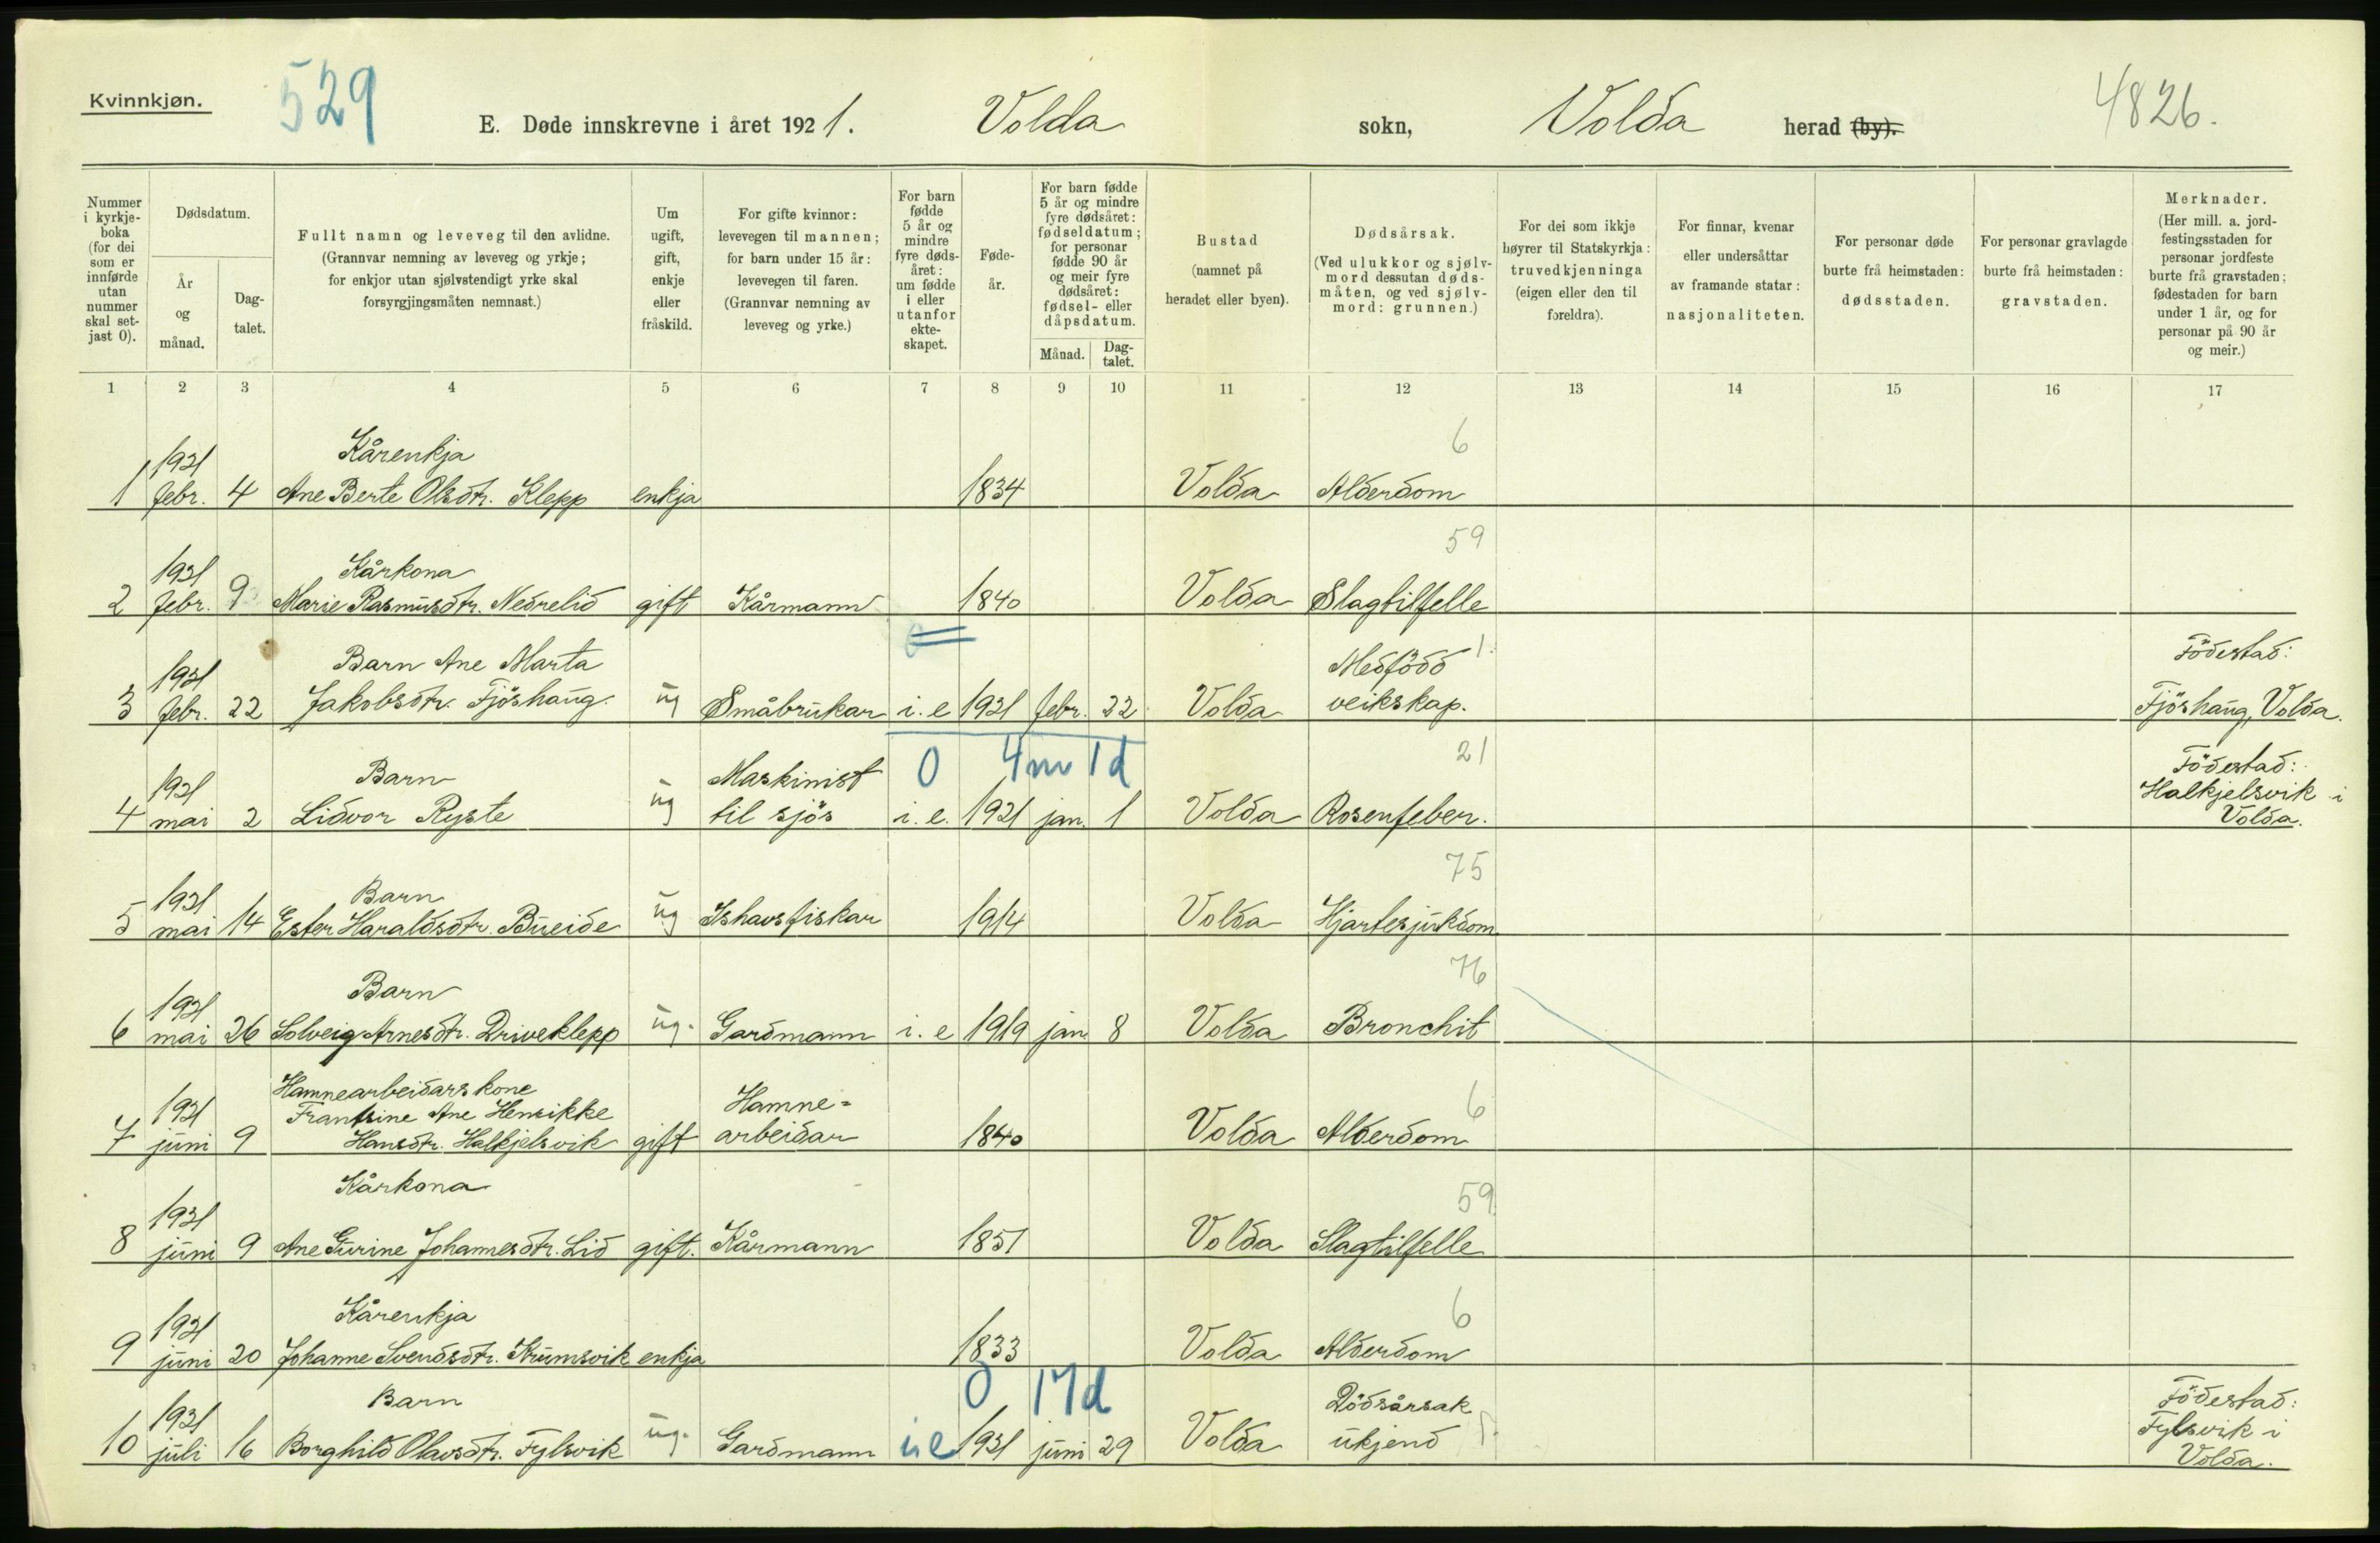 Kvinnkjøn.
529
E. Døde innskrevne i året 1921. Volda sokn, Volda herad (by).
4826.
Nummer i kyrkje-boka (for dei som er innførde utan nummer skal set-jast 0).
Dødsdatum.
År og månad.
Dag-talet.
Fullt namn og leveveg til den avlidne.
(Grannvar nemning av leveveg og yrkje;
for enkjor utan sjølvstendigt yrke skal
forsyrgjingsmåten nemnast.)
Um ugift, gift, enkje eller fråskild.
For gifte kvinnor:
levevegen til mannen;
for barn under 15 år:
levevegen til faren.
(Grannvar nemning av
leveveg og yrke.)
For barn fødde 5 år og mindre fyre døds-året: um fødde i eller utanfor ekte-skapet.
Føde-år.
For barn fødde 5 år og mindre fyre dødsåret: fødseldatum; for personar fødde 90 år og meir fyre dødsåret: fødsel- eller dåpsdatum.
Månad.
Dag-talet.
Bustad
(namnet på
heradet eller byen).
Dødsårsak.
(Ved ulukkor og sjølv-
mord dessutan døds-
måten, og ved sjølv-
mord: grunnen.)
For dei som ikkje
høyrer til Statskyrkja:
truvedkjenninga
(eigen eller den til
foreldra).
For finnar, kvenar
eller undersåttar
av framande statar:
nasjonaliteten.
For personar døde
burte frå heimstaden:
dødsstaden.
For personar gravlagde
burte frå heimstaden:
gravstaden.
Merknader.
(Her mill. a. jord-
festingsstaden for
personar jordfeste
burte frå gravstaden;
fødestaden for barn
under 1 år, og for
personar på 90 år
og meir.)
1 2 3 4 5 6 7 8 9 10 11 12 13 14 15 16 17
1921 Kårenkja 6
1 febr. 4 Ane Berte Olsdtr. Klepp enkja 1834 Volda Alderdom
1921 Kårkona 59
2 febr. 9 Marie Rasmusdtr. Nedrelid gift Kårmann 1840 Volda Slagtilfelle
0
1921 Barn Ane Marta Medfödd 1. Födestad:
3 febr. 22 Jakobsdtr. Fjöshaug. ug Småbrukar i. e 1921 febr. 22 Volda veikskap. Fjöshaug, Volda.
0 4m 1d 21
1921 Barn Maskinist Födestad:
4 mai 2 Lidvor Ryste ug til sjös i. e. 1921 jan. 1 Volda Rosenfeber. Halkjelsvik i
Volda.
1921 Barn 75
5 mai 14 Ester Haraldsdtr. Bueide ug Ishavsfiskar 1914 Volda Hjartesjukdom
1921 Barn 76
6 mai 26 Solveig Arnesdtr. Driveklepp ug. Gardmann i. e 1919 jan. 8 Volda Bronchit
Hamnearbeidarskone
1921 Frantsine Ane Henrikke Hamne= 6
7 juni 9 Hansdtr. Halkjelsvik gift arbeidar 1840 Volda Alderdom
1921 Kårkona 59.
8 juni 9 Ane Gurine Johannesdtr. Lid gift. Kårmann 1851 Volda Slagtilfelle
1921 Kårenkja 6
9 juni 20 Johanne Svendsdtr. Krumsvik enkja 1833 Volda Alderdom
0 17d
1921 Barn Dödsårsak Födestad:
10 juli 16 Borghild Olavsdtr. Fylsvik ug. Gardmann i e 1921 juni 29 Volda ukjend Fylsvik i
Volda.